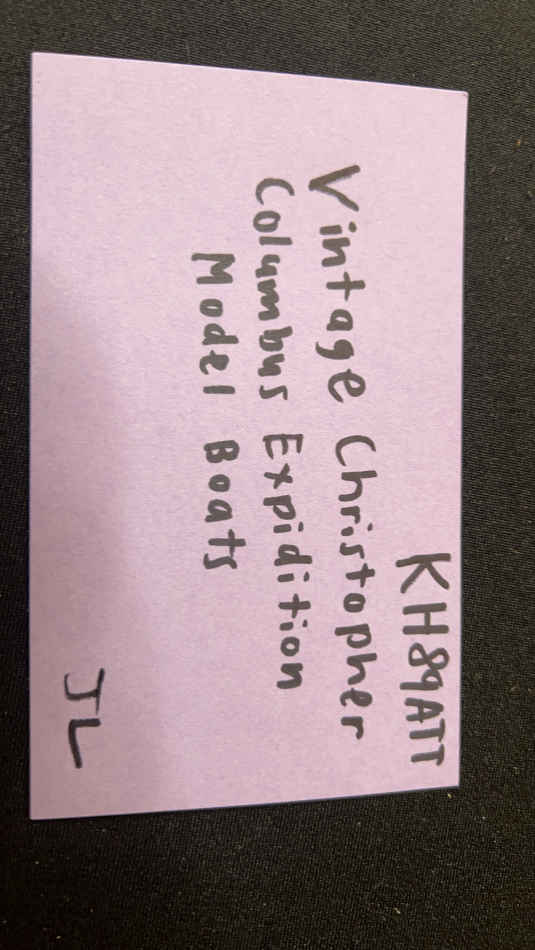 KH89ATT
Vintage Christopher
Columbus Expidition
Model Boats
JL